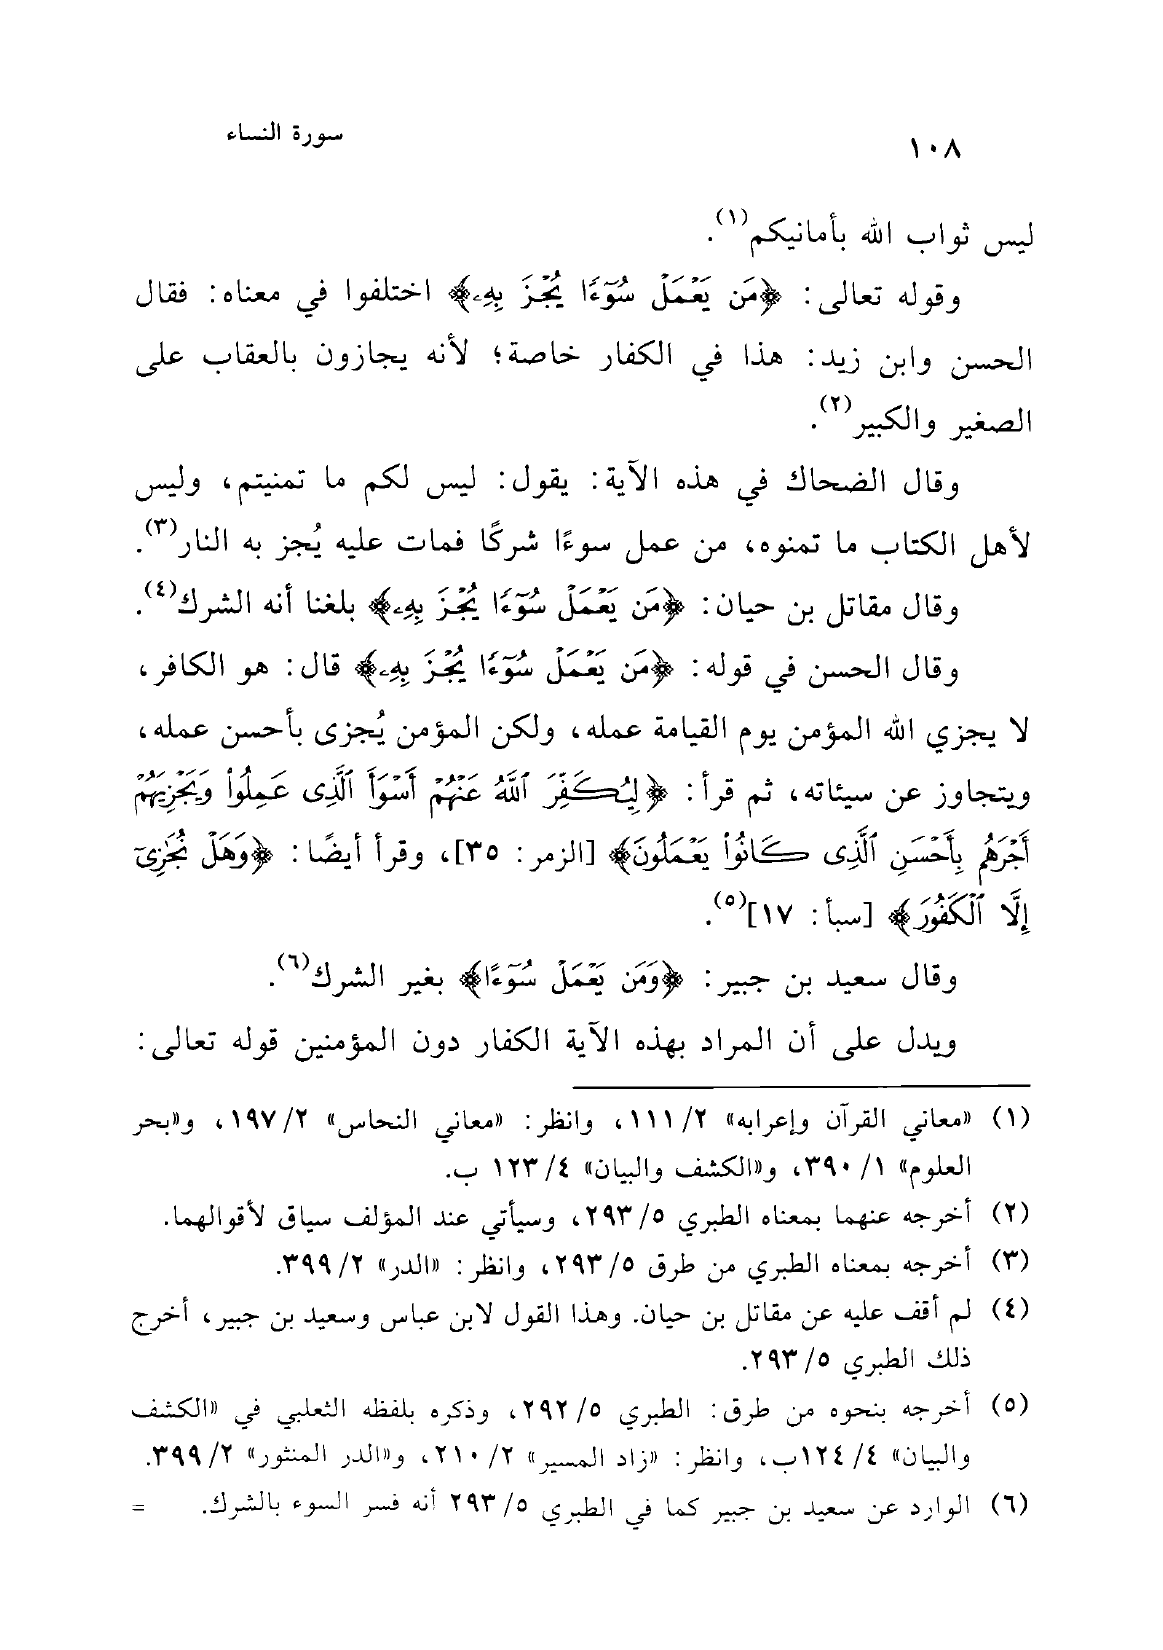 ١٠٨
سورة النساء
ليس ثواب الله بأمانيكم(١).
وقوله تعالى: ﴿مَن يَعْمَلْ سُوٓءًا يُجْزَ بِهِۦ﴾ اختلفوا في معناه: فقال
الحسن وابن زيد: هذا في الكفار خاصة؛ لأنه يجازون بالعقاب على
الصغير والكبير(٢).
وقال الضحاك في هذه الآية: يقول: ليس لكم ما تمنيتم، وليس
لأهل الكتاب ما تمنوه، من عمل سوءًا شركًا فمات عليه يُجز به النار(٣).
وقال مقاتل بن حيان: ﴿مَن يَعْمَلْ سُوٓءًا يُجْزَ بِهِۦ﴾ بلغنا أنه الشرك(٤).
وقال الحسن في قوله: ﴿مَن يَعْمَلْ سُوٓءًا يُجْزَ بِهِۦ﴾ قال: هو الكافر،
لا يجزي الله المؤمن يوم القيامة عمله، ولكن المؤمن يُجزى بأحسن عمله،
ويتجاوز عن سيئاته، ثم قرأ: ﴿لِيُكَفِّرَ ٱللَّهُ عَنْهُمْ أَسْوَأَ ٱلَّذِى عَمِلُوا۟ وَيَجْزِيَهُمْ
أَجْرَهُم بِأَحْسَنِ ٱلَّذِى كَانُوا۟ يَعْمَلُونَ﴾ [الزمر: ٣٥]، وقرأ أيضًا: ﴿وَهَلْ نُجَٰزِىٓ
إِلَّا ٱلْكَفُورَ﴾ [سبأ: ١٧](٥).
وقال سعيد بن جبير: ﴿وَمَن يَعْمَلْ سُوٓءًا﴾ بغير الشرك(٦).
ويدل على أن المراد بهذه الآية الكفار دون المؤمنين قوله تعالى:
(١) «معاني القرآن وإعرابه» ٢/ ١١١، وانظر: «معاني النحاس» ٢/ ١٩٧، و«بحر
العلوم» ١/ ٣٩٠، و«الكشف والبيان» ٤/ ١٢٣ ب.
(٢) أخرجه عنهما بمعناه الطبري ٥/ ٢٩٣، وسيأتي عند المؤلف سياق لأقوالهما.
(٣) أخرجه بمعناه الطبري من طرق ٥/ ٢٩٣، وانظر: «الدر» ٢/ ٣٩٩.
(٤) لم أقف عليه عن مقاتل بن حيان. وهذا القول لابن عباس وسعيد بن جبير، أخرج
ذلك الطبري ٥/ ٢٩٣.
(٥) أخرجه بنحوه من طرق: الطبري ٥/ ٢٩٢، وذكره بلفظه الثعلبي في «الكشف
والبيان» ٤/ ١٢٤ب، وانظر: «زاد المسير» ٢/ ٢١٠، و«الدر المنثور» ٢/ ٣٩٩.
(٦) الوارد عن سعيد بن جبير كما في الطبري ٥/ ٢٩٣ أنه فسر السوء بالشرك. =